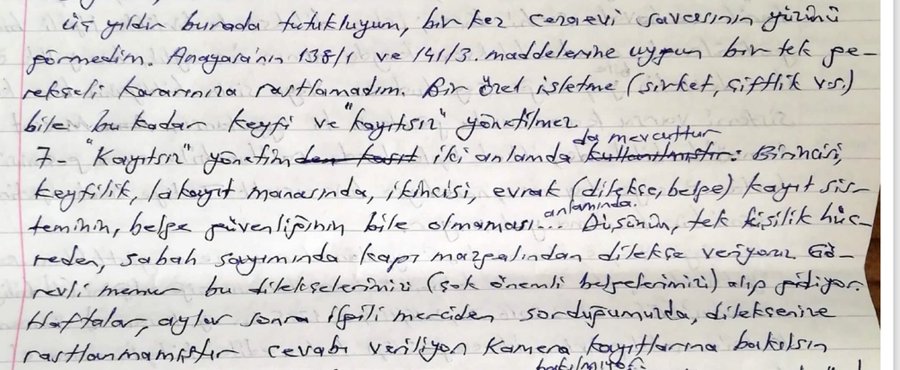 üç yıldır burada tutukluyum, bir kez cezaevi savcısının yüzünü
görmedim. Anayasa'nın 138/1 ve 141/3. maddelerine uygun bir tek ge-
rekçeli kararınıza rastlamadım. Bir özel işletme (şirket, çiftlik vs.)
bile bu kadar keyfi ve "kayıtsız" yönetilmez.
7- "Kayıtsız" yönetim den kasıt iki anlamda kullanılmıştır: da mevcuttur Birincisi,
keyfilik, lakayıt manasında, ikincisi, evrak (dilekçe, belge) kayıt sis-
teminin, belge güvenliğinin bile olmaması anlamında... Düşünün, tek kişilik hüc-
reden, sabah sayımında kapı mazgalından dilekçe veriyoruz Gö-
revli memur bu dilekçelerimizi (çok önemli belgelerimizi) alıp gidiyor.
Haftalar, aylar sonra ilgili merciden sorduğumuzda, dilekçenize
rastlanmamıştır cevabı veriliyor. Kamera kayıtlarına bakılsın
bakılmıyor.